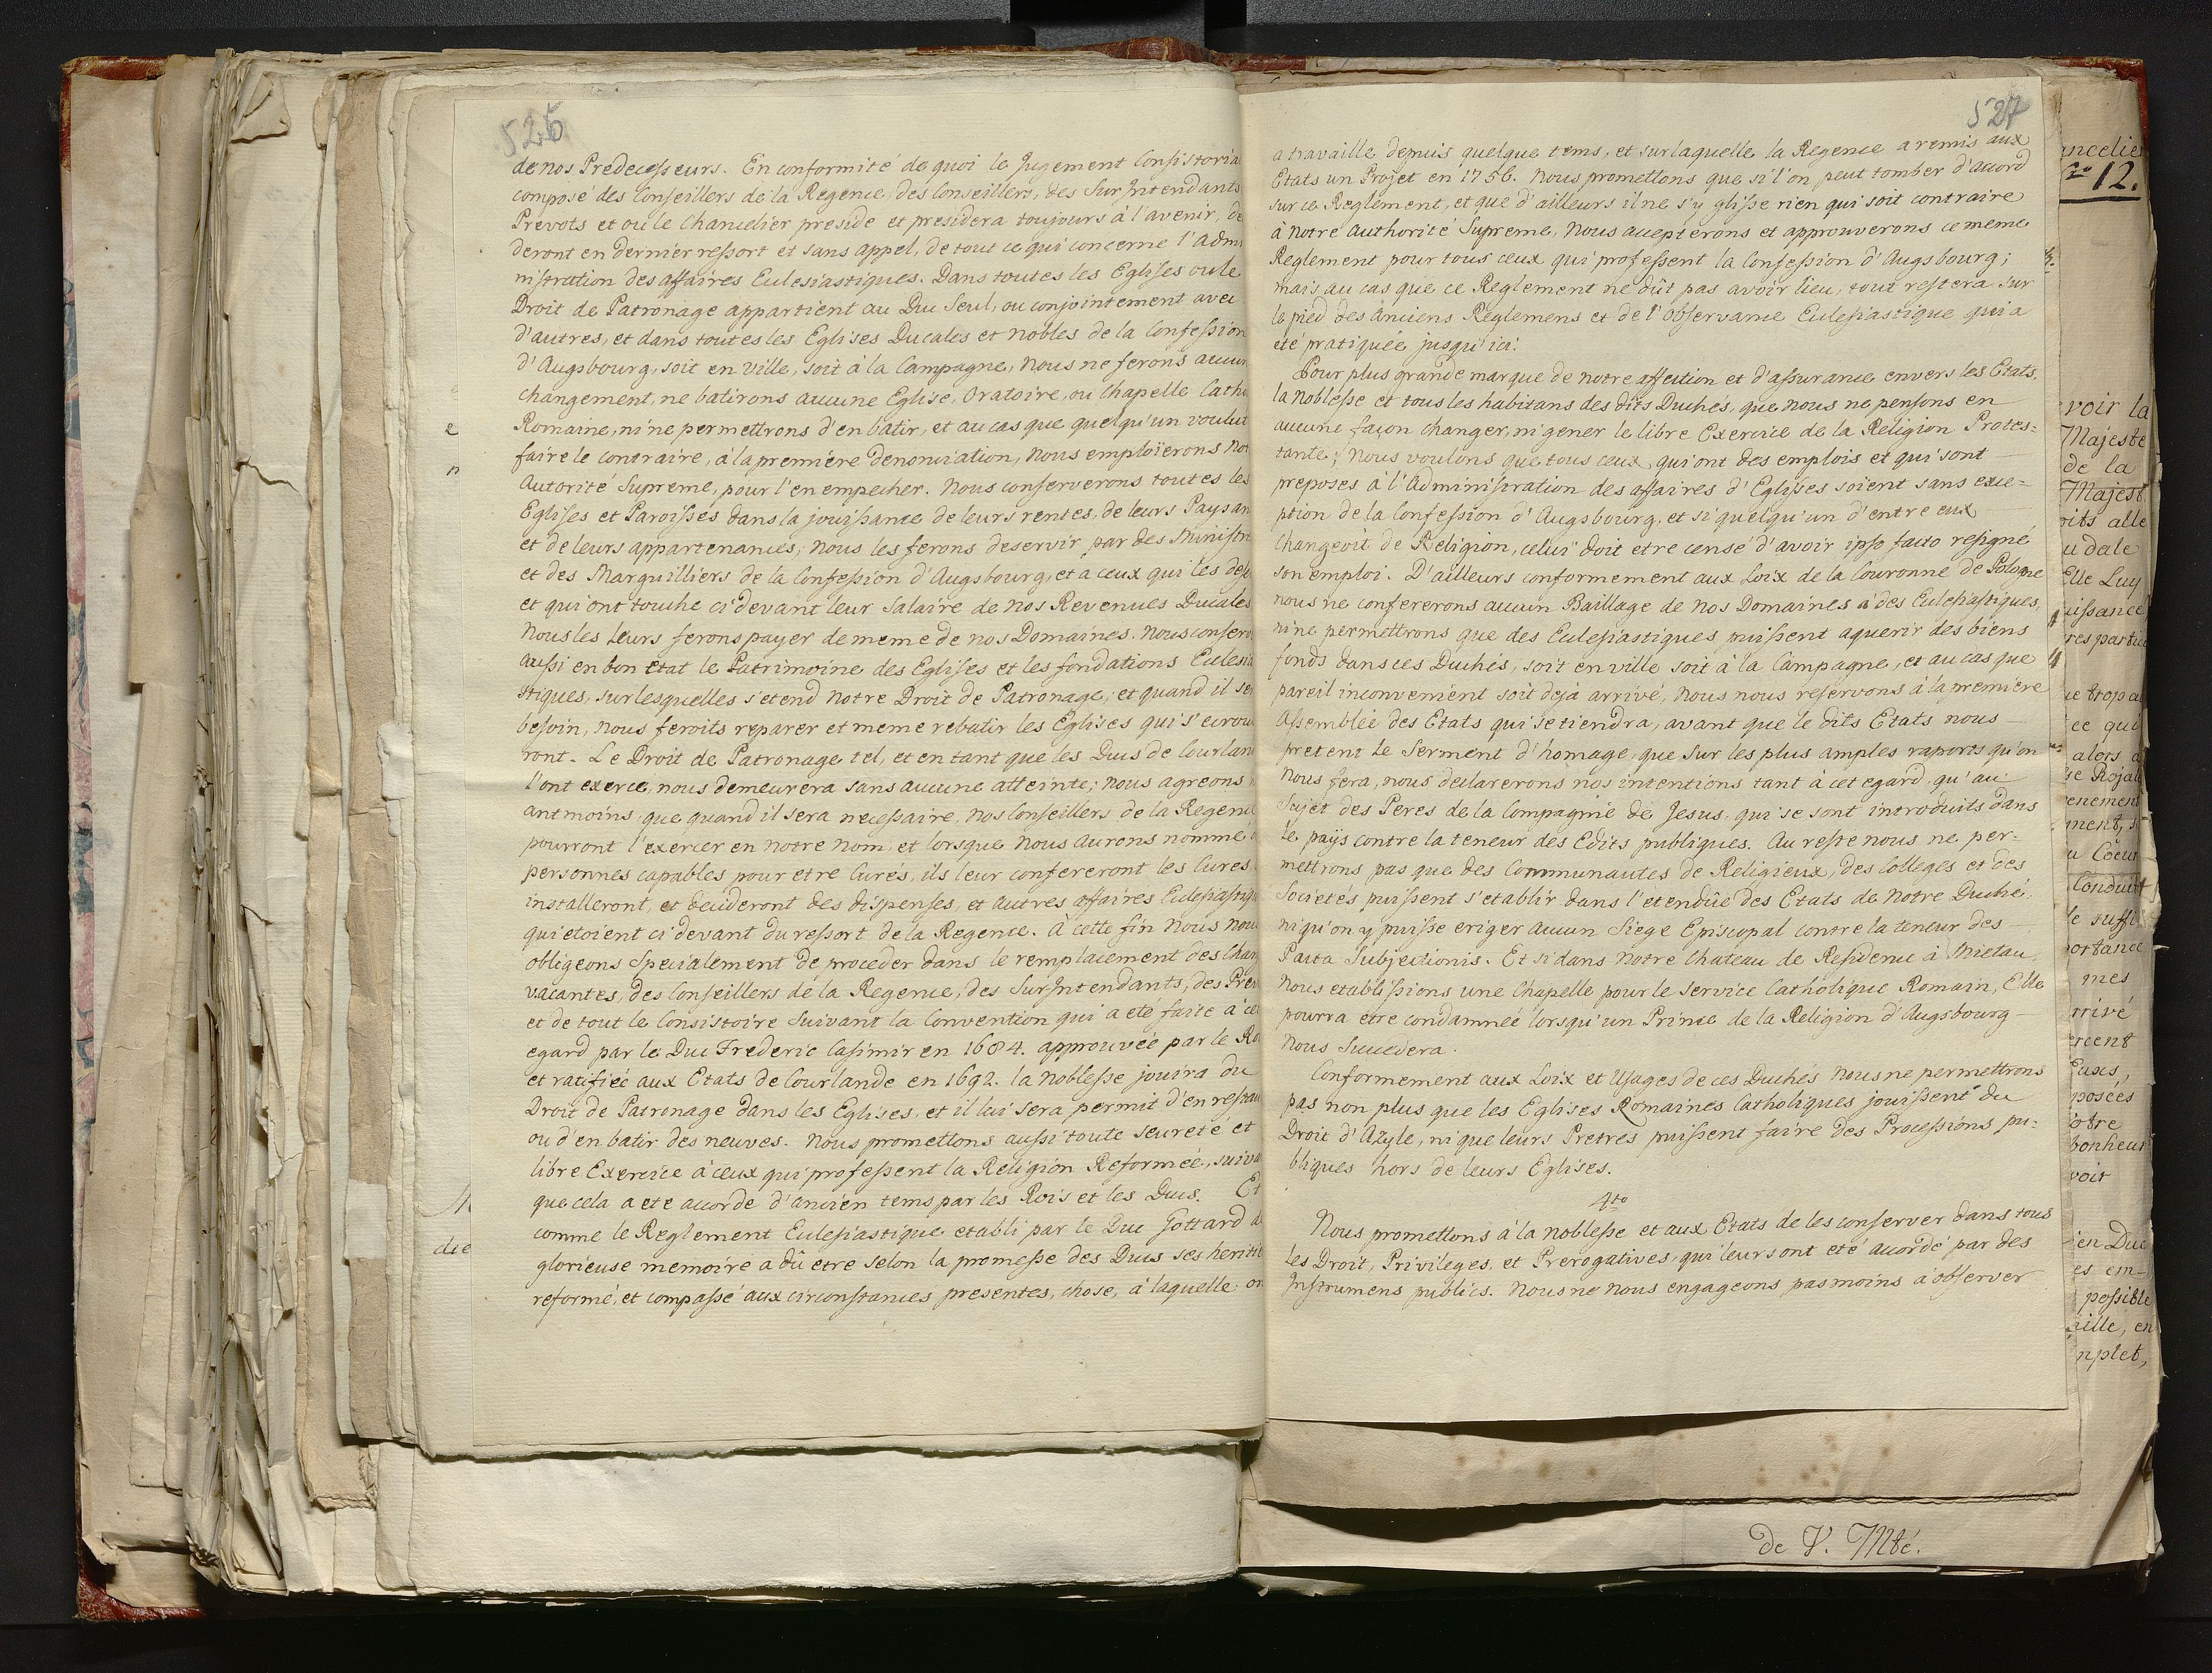 526
de nos Predecesseurs. En conformité de quoi le Jugement Consistoria
composé des Conseillers de la Regence, des Conseillers, des SurIntendants
Prevots et ou le Chancelier preside et presidera toujours à l'avenir, de
deront en dernier ressort et sans appel, de tout ce qui concerne l'Admi
nistration des affaires Eclesiastiques. Dans toutes les Eglises ou le
Droit de Patronage appartient au Duc Seul, ou conjointement avec
d'autres, et dans toutes les Eglises Ducales et Nobles de la Confession
d'Augsbourg, soit en Ville, soit à la Campagne, Nous ne ferons aucun
changement, ne batirons aucune Eglise, Oratoire, ou Chapelle Catho
Romaine, ni ne permettrons d'en batir, et au cas que quelqu'un voulut
faire le contraire, à la première denonciation, Nous emploïerons Not
Autorité Supreme, pour l'en empecher. Nous conserverons toutes les
Eglises et Paroisses dans la jouissance de leurs rentes, de leurs Paysan
et de leurs appartenances; Nous les ferons deservir par des Ministr
et des Marguilliers de la Confession d'Augsbourg, et a ceux qui les dese
et qui ont touche ci devant leur Salaire de nos Revenues Ducales
Nous les leurs ferons payer de meme de nos Domaines. Nous confero
aussi en bon etat le Patrimoine des Eglises et les fondations Eclesia
stiques, sur lesquelles s'etend Notre Droit de Patronage; et quand il ser
besoin, Nous feroits reparer et meme rebatir les Eglises qui s'ecrou
ront. Le Droit de Patronage tel, et en tant que les Ducs de Courlan
l'ont exerce, nous demeurera sans aucune atteinte; Nous agreons n
antmoins que quand il sera necessaire, Nos Conseillers de la Regenc
pourront l'exercer en notre nom, et lorsque Nous Aurons nommé
personnes capables pour etre Curés, ils leur confereront les Cures,
installeront, et decideront des dispenses, et autres affaires Eclesiastiqu
qui etoient ci devant du ressort de la Regence. A cette fin Nous nou
obligeons Specialement de proceder dans le remplacement des Char
vacantes, des Conseillers de la Regence, des SurIntendants, des Prev
et de tout le Consistoire Suivant la Convention qui a eté faite à cet
egard par le Duc Frederic Casimir en 1684. approuvée par le Ro
et ratifiée aux Etats de Courlande en 1692. la Noblesse jouira du
Droit de Patronage dans les Eglises, et il lui sera permit d'en restau
ou d'en batir des neuves. Nous promettons aussi toute seureté et
libre Exercice à ceux qui professent la Religion Reformée, suiva
que cela a ete acorde d'ancien tems par les Rois et les Ducs. Et
comme le Reglement Eclesiastique etabli par le Duc Gottard d
glorieuse memoire a dû etre selon la promesse des Ducs ses heriti
reformé, et compassé aux circonstances presentes, chose, à laquelle on
e
n
die
527
a travaille depuis quelque tems, et sur laquelle la Regence a remis aux
Etats un Projet en 1756. Nous promettons que si l'on peut tomber d'accord
sur ce Reglement, et que d'ailleurs il ne s'y glisse rien qui soit contraire
à Notre Authorité Supreme, Nous accepterons et approuverons ce meme
Reglement pour tous ceux qui professent la Confession d'Augsbourg;
mais au cas que ce Reglement ne dût pas avoir lieu, tout restera sur
le pied des anciens Reglemens et de l'Observance Eclesiastique qui a
eté pratiquée jusqu'ici.
Pour plus grande marque de notre affection et d'assurance envers les Etats,
la Noblesse et tous les habitans des dits Duchés, que nous ne pensons en
aucune façon changer, ni gener le libre Exercice de la Religion Protes=
tante; Nous voulons que tous ceux, qui ont des emplois et qui sont
preposes à l'Administration des affaires d'Eglises soient sans exce=
ption de la Confession d'Augsbourg, et si quelqu'un d'entre eux
changeoit de Religion, celui doit etre censé d'avoir ipso facto resigné
son emploi. D'ailleurs conformement aux Loix de la Couronne de Pologne
nous ne confererons aucun Baillage de nos Domaines à des Eclesiastiques,
ni ne permettrons que des Eclesiastiques puissent aquerir des biens
fonds dans ces Duchés, soit en ville soit à la Campagne, et au cas que
pareil inconvenient soit deja arrivé, Nous nous reservons à la premiere
Assemblée des Etats qui se tiendra, avant que le dits Etats nous
pretent le Serment d'homage, que sur les plus amples raports qu'on
Nous fera, nous declarerons nos intentions tant à cet egard, qu'au
Sujet des Peres de la Compagnie de Jesus, qui se sont introduits dans
le pays contre la teneur des Edits publiques. Au reste nous ne per-
mettrons pas que des Communautes de Religieux, des Colleges et des
Societés puissent s'etablir dans l'etendüe des Etats de Notre Duché
ni qu'on y puisse eriger aucun Siege Episcopal contre la teneur des
Pacta Subjectionis. Et si dans Notre Chateau de Residence à Mietau
Nous etablissions une Chapelle pour le Service Catholique Romain, Elle
pourra etre condamnée lorsqu'un Prince de la Religion d'Augsbourg
Nous Succedera.
Conformement aux Loix et Usages de ces Duchés Nous ne permettrons
pas non plus que les Eglises Romaines Catholiques jouissent du
Droit d'Azyle, ni que leurs Pretres puissent faire des Processions pu=
bliques hors de leurs Eglises.
4to
Nous promettons à la Noblesse et aux Etats de les conserver dans tous
les Droit, Privileges, et Prerogatives, qui leurs ont eté acordé par des
Instrumens publics. Nous ne nous engageons pas moins à observer
de V. Mté.
ncelie
12.
voir la
Majesté
de la
Majest
oits alle
u dale
Elle Luy
uissance
res partic
ue trop a
ce qui
alors a
se Rojale
enement
ment, s
u Coeur
Conduit
le suffi
ortance
mes
rrivé
ercent
Euxs,
posées
otre
bonheur
voir
ien Duc
es em-
possible
aille, en
mplet,